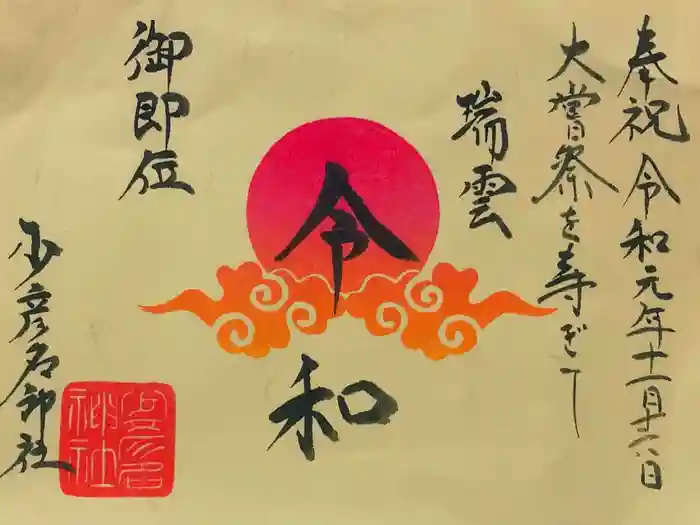 奉祝令和元年十一月十六日
大嘗祭を寿ぎて
瑞雲
令和
御即位
少彦名神社
少彦名神社